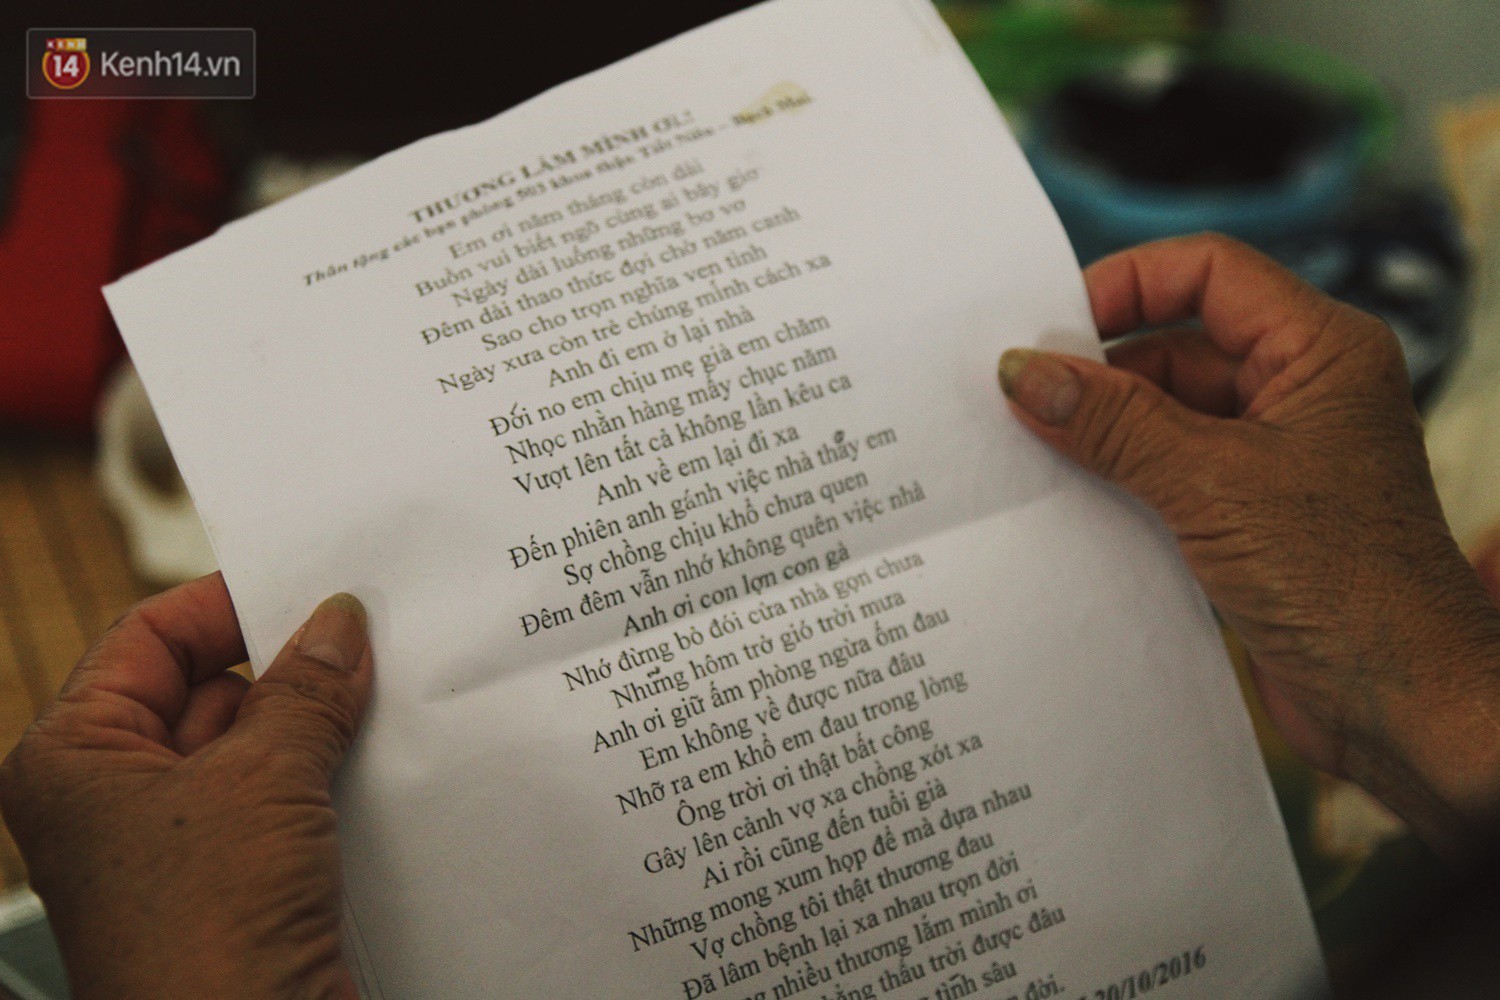 KENH
14 Kenh14.vn
THƯƠNG LẮM MÌNH ƠI!
Thân tặng các bạn phòng 503 khoa thận Tiết Niệu – Bạch Mai.
Em ơi năm tháng còn dài
Buồn vui biết ngõ cùng ai bây giờ
Ngày dài luống những bơ vơ
Đêm dài thao thức đợi chờ năm canh
Sao cho trọn nghĩa vẹn tình
Ngày xưa còn trẻ chúng mình cách xa
Anh đi em ở lại nhà
Đói no em chịu mẹ già em chăm
Nhọc nhằn hàng mấy chục năm
Vượt lên tất cả không lần kêu ca
Anh về em lại đi xa
Đến phiên anh gánh việc nhà thấy em
Sợ chồng chịu khổ chưa quen
Đêm đêm vẫn nhớ không quên việc nhà
Anh ơi con lợn con gà
Nhớ đừng bỏ đói cửa nhà gọn chưa
Những hôm trở gió trời mưa
Anh ơi giữ ấm phòng ngừa ốm đau
Em không về được nữa đâu
Nhỡ ra em khổ em đau trong lòng
Ông trời ơi thật bất công
Gây lên cảnh vợ xa chồng xót xa
Ai rồi cũng đến tuổi già
Những mong xum họp để mà dựa nhau
Vợ chồng tôi thật thương đau
Đã lâm bệnh lại xa nhau trọn đời
nhiều thương lắm mình ơi
thấu trời được đâu
tình sâu
đời.
20/10/2016